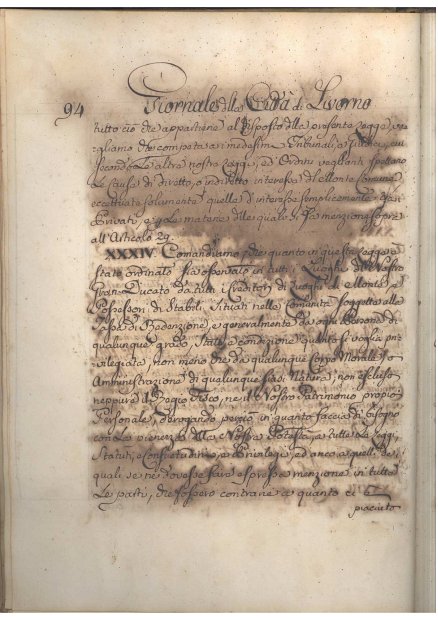 94
Giornale della Città di Livorno
tutto ciò che appartiene al disposto della presente Legge, vo-
gliamo che competa ai medesimi Tribunali, e Giudici, cui
secondo le altre nostre Leggi, ed Ordini veglianti spettano
le cause di diretto, o indiretto interesse delle Comune,
eccettuate solamente quelle d'interesse semplicemente
Privato, e le materie delle quali si fa menzione sopra
all'Articolo 29.
XXXIV. Comandiamo, che quanto in questa Legge è
stato ordinato sia osservato in tutti i Luoghi del Nostro
Gran-Ducato da tutti i Creditori di Luoghi di Monte, e
Possessori di Stabili situati nelle Comunità soggette alla
Tassa di Redenzione, e generalmente da ogni Persona di
qualunque grado, Stato, e condizione quanto si voglia pri-
vilegiata, non meno che da qualunque Corpo Morale, o
Amministrazione di qualunque siasi Natura, non escluso
neppure il Regio Fisco, nè il Nostro Patrimonio proprio
Personale, derogando perciò in quanto faccia di bisogno
con la pienezza della Nostra Potestà, a tutte le Leggi,
Statuti, e Consuetudini, e Privilegi, ed anco a quelli, de'
quali se ne dovesse fare espressa menzione in tutte
le parti, che fossero contrarie a quanto ci è
piaciuto